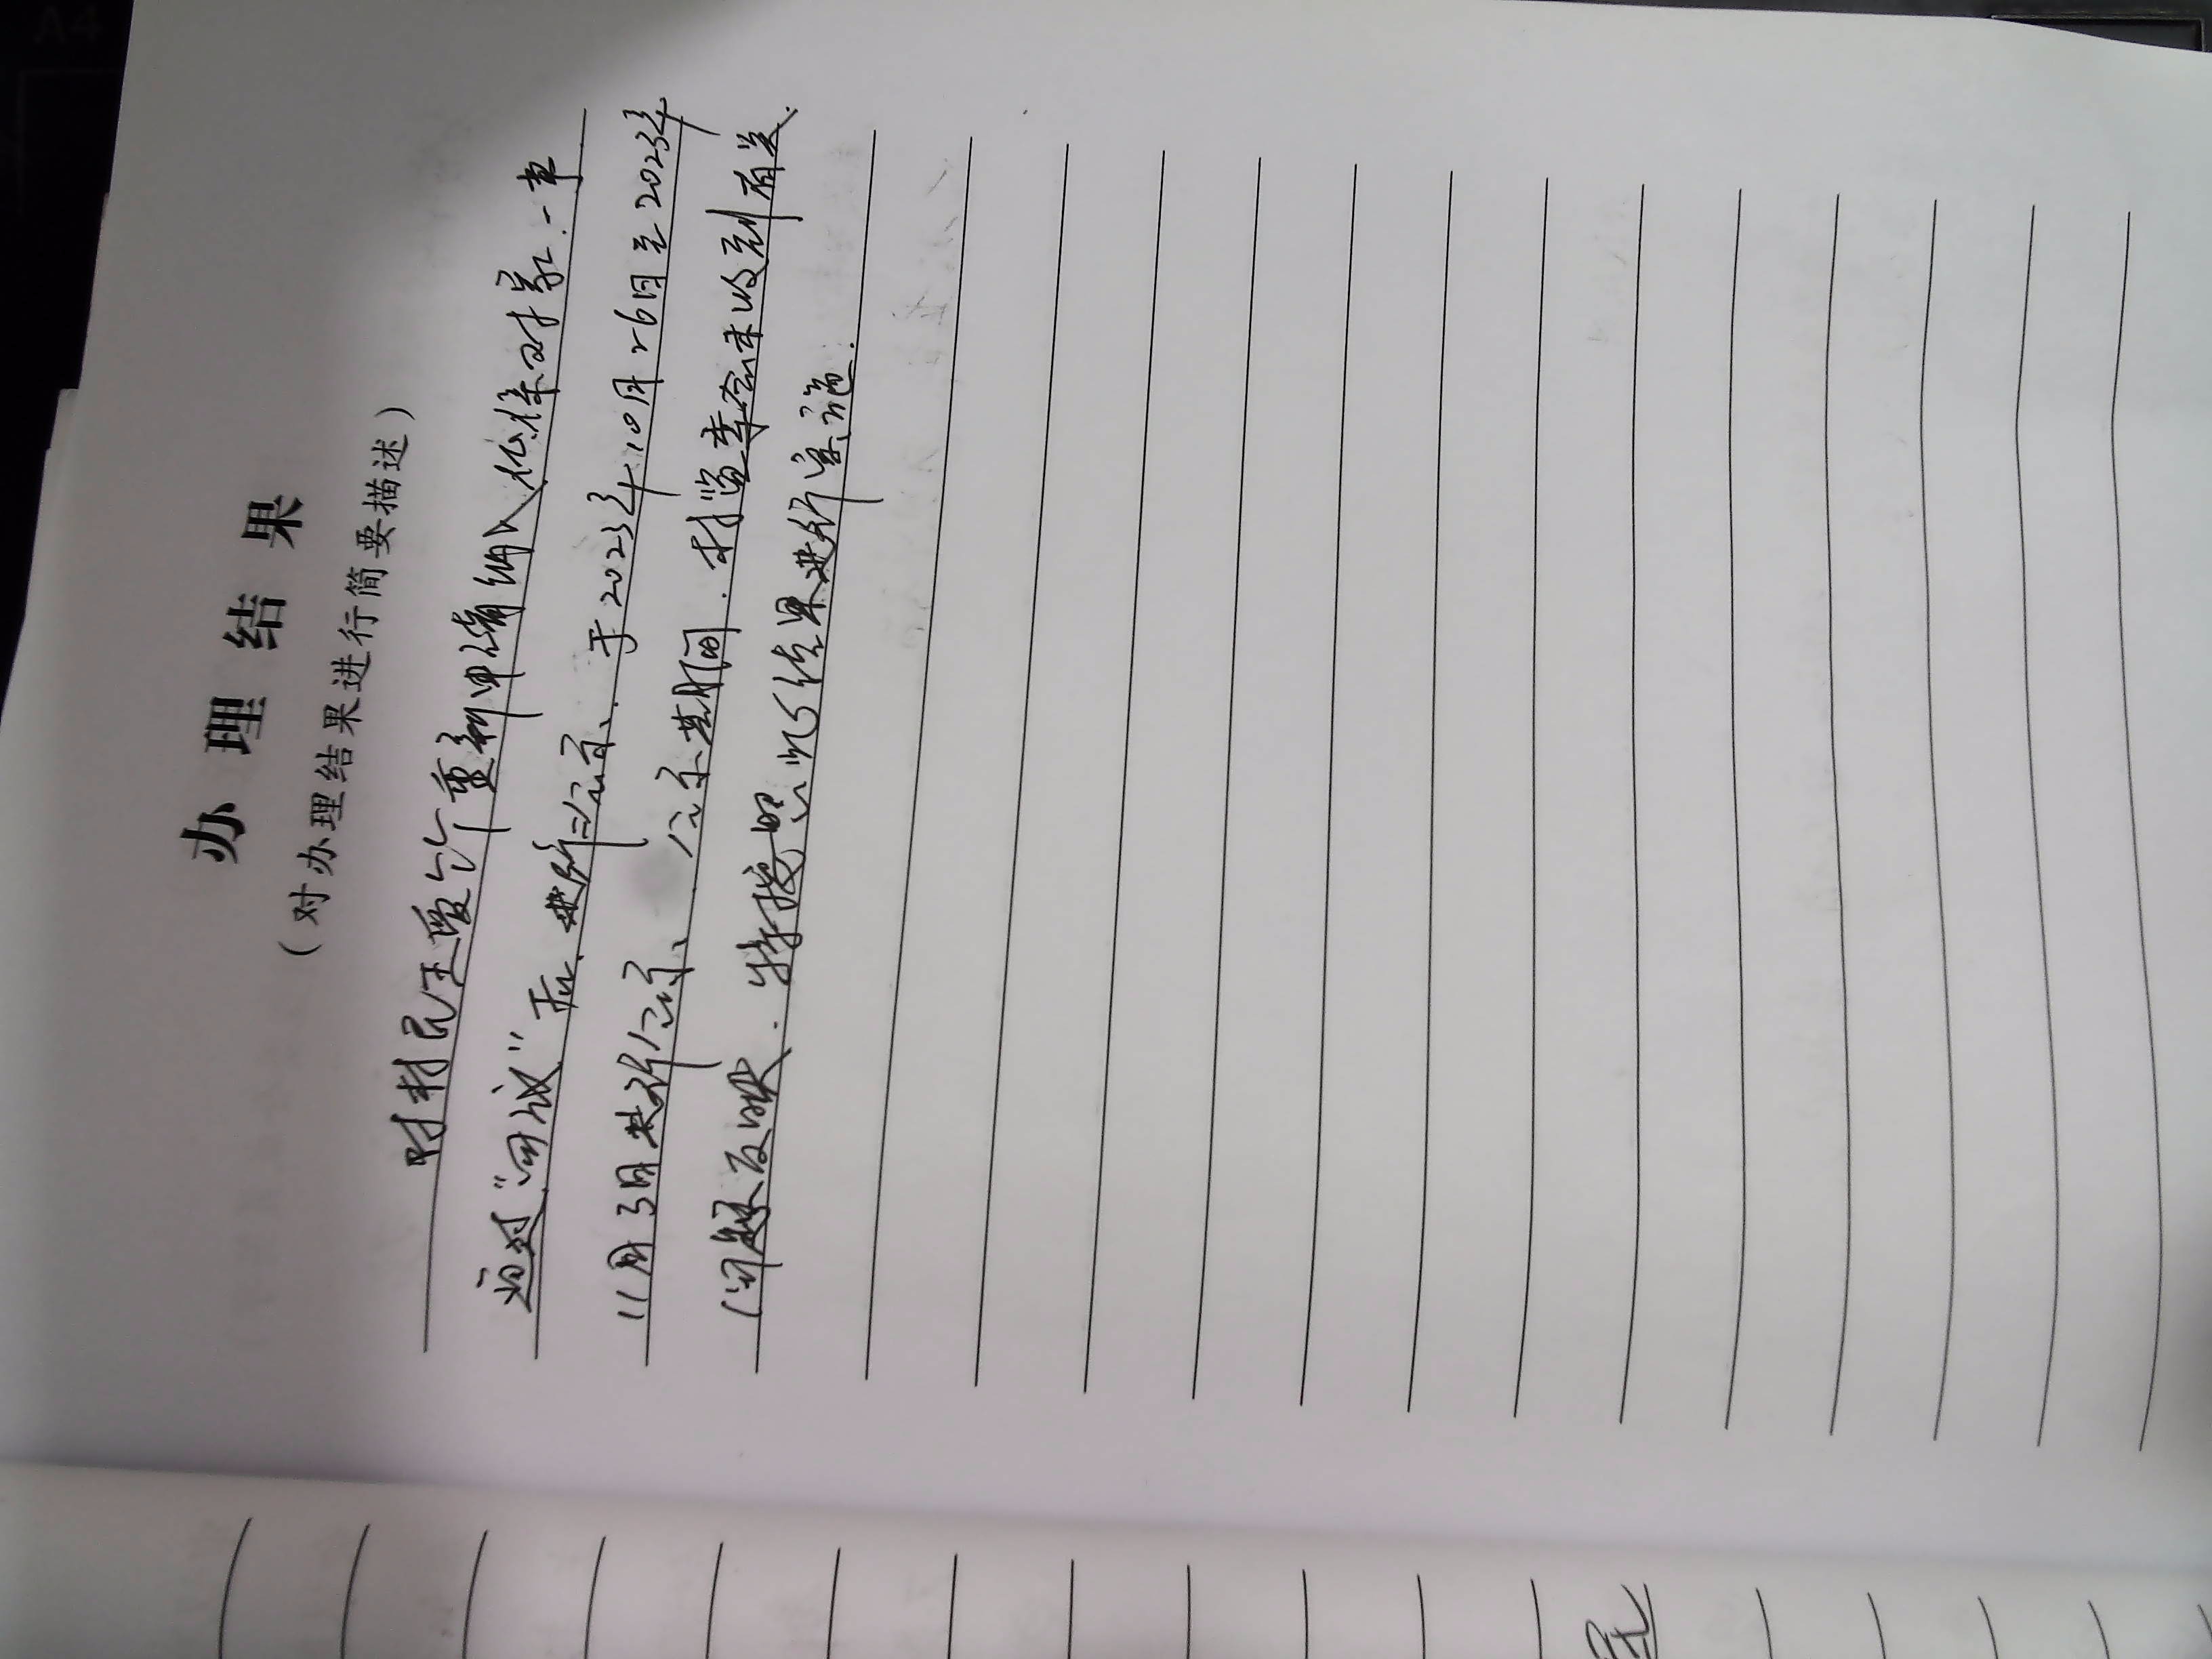 办理结果
（对办理结果进行简要描述）
对村民王爱竹重新申请纳入低保对象一事
通过“四议”后、进行二公示、于2023年10月26日至2023年
11月3日进行公示、公示期间.村监委会未收到有关
问题反映.特按照此结果进行实施.
民